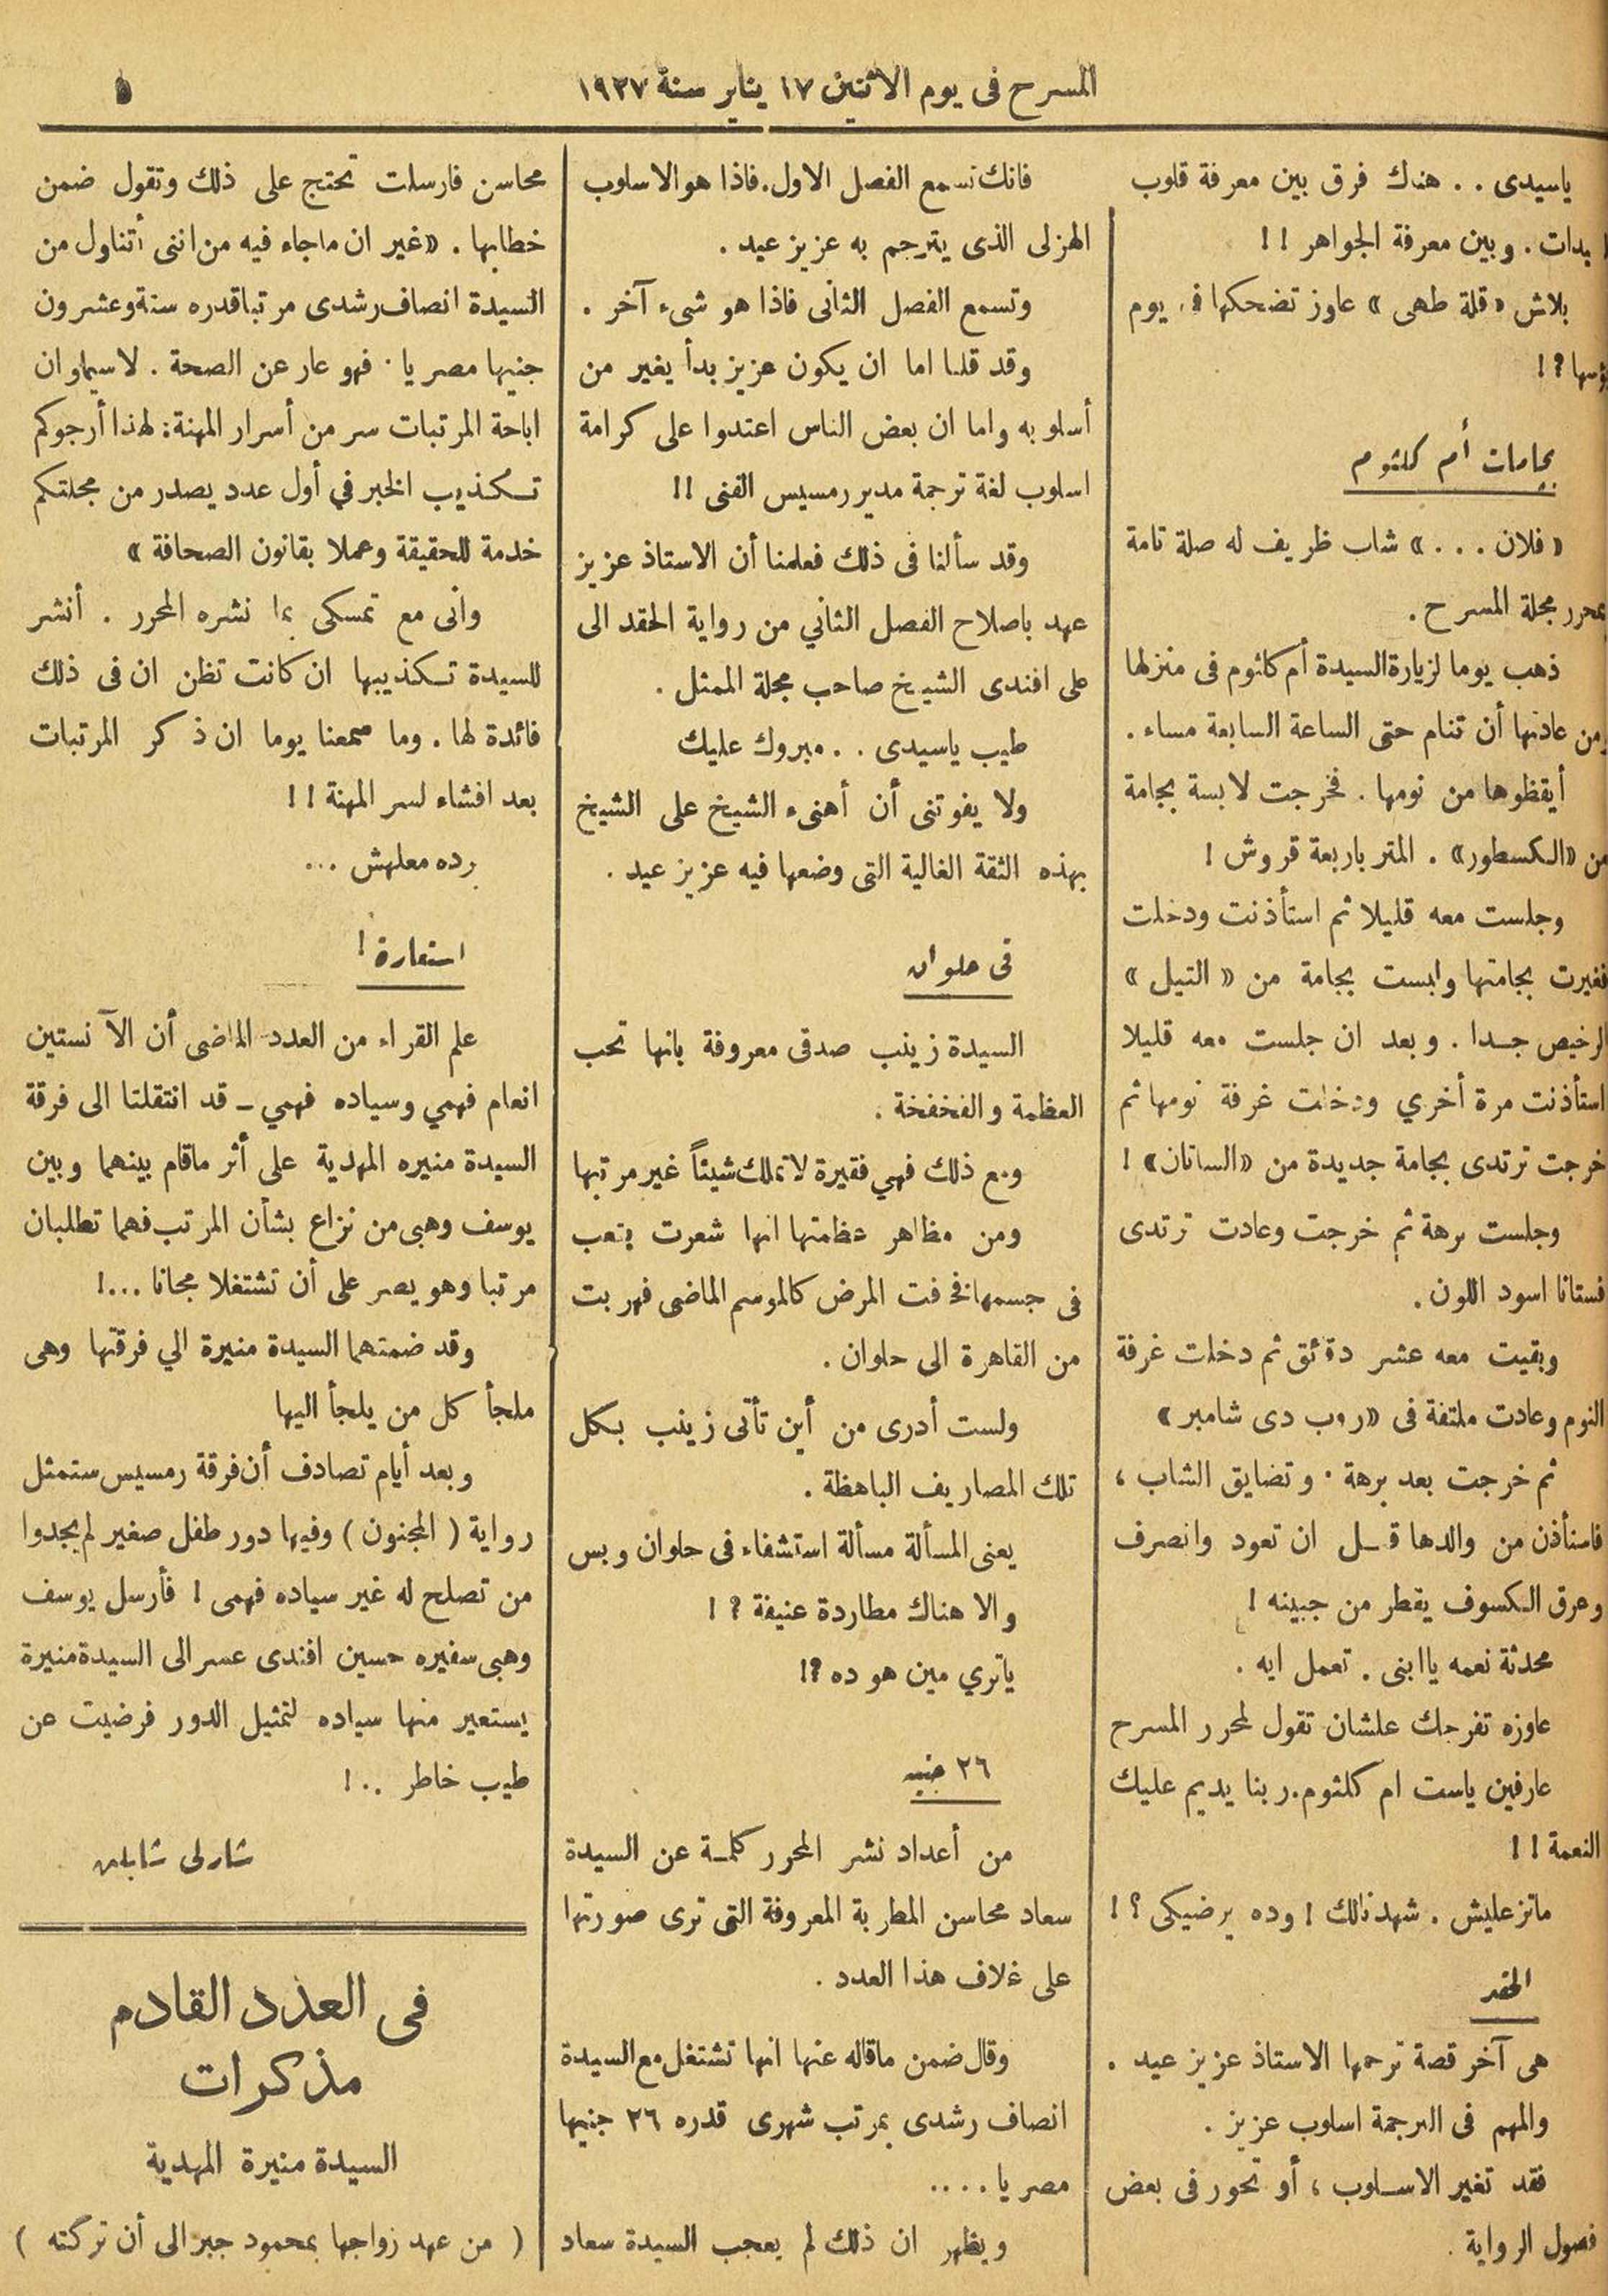 المسرح فى يوم الاثنين ١٧ يناير سنة ١٩٢٧
٥
ياسيدى . . هناك فرق بين معرفة قلوب
. وبين معرفة الجواهر ! !
بلاش « قلة طهى » عاوز تضحكها فى يوم
بؤسها ? !
بجامات أم كلثوم
« فلان . . . » شاب ظريف له صلة تامة
بمحرر مجلة المسرح .
ذهب يوما لزيارة السيدة أم كلثوم فى منزلها
ومن عادتها أن تنام حتى الساعة السابعة مساء .
أيقظوها من نومها . فخرجت لابسة بجامة
من «الكسطور» . المتر باربعة قروش !
وجلست معه قليلا ثم استأذنت ودخلت
فغيرت بجامتها ولبست بجامة من « التيل »
الرخيص جدا . وبعد ان جلست معه قليلا
استأذنت مرة أخري ودخلت غرفة نومها ثم
خرجت ترتدى بجامة جديدة من «الساتان» !
وجلست برهة ثم خرجت وعادت ترتدى
فستانا اسود اللون .
وبقيت معه عشر دقائق ثم دخلت غرفة
النوم وعادت ملتفة فى «روب دى شامبر»
ثم خرجت بعد برهة . وتضايق الشاب ،
فاستأذن من والدها قبل ان تعود وانصرف
وعرق الكسوف يقطر من جبينه !
محدثة نعمه ياابنى . تعمل ايه .
عاوزه تفرجك علشان تقول لمحرر المسرح
عارفين ياست ام كلثوم . ربنا يديم عليك
النعمة ! !
ماتزعليش . شهدنالك ! وده يرضيكى ؟ !
الحقد
هى آخر قصة ترجمها الاستاذ عزيز عيد .
والمهم فى الترجمة اسلوب عزيز .
فقد تغير الاسلوب ، أو تحور فى بعض
فصول الرواية .
فانك تسمع الفصل الاول . فاذا هو الاسلوب
الهزلى الذى يترجم به عزيز عيد .
وتسمع الفصل الثانى فاذا هو شىء آخر .
وقد قلنا اما ان يكون عزيز بدأ يغير من
أسلوبه واما ان بعض الناس اعتدوا على كرامة
اسلوب لغة ترجمة مدير رمسيس الفنى !!
وقد سألنا فى ذلك فعلمنا أن الاستاذ عزيز
عهد باصلاح الفصل الثاني من رواية الحقد الى
على افندى الشيخ صاحب مجلة الممثل .
طيب ياسيدى . . مبروك عليك
ولا يفوتنى أن أهنىء الشيخ على الشيخ
بهذه الثقة الغالية التى وضعها فيه عزيز عيد .
فى حلوان
السيدة زينب صدقى معروفة بانها تحب
العظمة والفخفخة .
ومع ذلك فهي فقيرة لاتملك شيئاً غير مرتبها
ومن مظاهر عظمتها انها شعرت بتعب
فى جسمها فخافت المرض كالموسم الماضى فهربت
من القاهرة الى حلوان .
ولست أدرى من أين تأتى زينب بكل
تلك المصاريف الباهظة .
يعنى المسألة مسألة استشفاء فى حلوان وبس
والا هناك مطاردة عنيفة ? !
ياتري مين هو ده ?!
٢٦ جنيه
من أعداد نشر المحرر كلمة عن السيدة
سعاد محاسن المطربة المعروفة التى ترى صورتها
على غلاف هذا العدد .
وقال ضمن ماقاله عنها انها تشتغل مع السيدة
انصاف رشدى بمرتب شهرى قدره ٢٦ جنيها
مصريا . . . .
ويظهر ان ذلك لم يعجب السيدة سعاد
محاسن فارسلت تحتج على ذلك وتقول ضمن
خطابها . «غير ان ماجاء فيه من اننى أتناول من
السيدة انصاف رشدى مرتبا قدره ستة وعشرون
جنيها مصريا . فهو عار عن الصحة . لاسيما وان
اباحة المرتبات سر من أسرار المهنة : لهذا أرجوكم
تكذيب الخبر في أول عدد يصدر من مجلتكم
خدمة للحقيقة وعملا بقانون الصحافة »
وانى مع تمسكى بما نشره المحرر . أنشر
للسيدة تكذيبها ان كانت تظن ان فى ذلك
فائدة لها . وما سمعنا يوما ان ذكر المرتبات
يعد افشاء لسر المهنة ! !
برده معلهش ...
استعارة !
علم القراء من العدد الماضى أن الآنستين
انعام فهمي وسياده فهمي ــ قد انتقلتا الى فرقة
السيدة منيره المهدية على أثر ماقام بينهما وبين
يوسف وهبى من نزاع بشأن المرتب فهما تطلبان
مرتبا وهو يصر على أن تشتغلا مجانا ...!
وقد ضمتهما السيدة منيرة الي فرقتها وهى
ملجأ كل من يلجأ اليها
وبعد أيام تصادف أن فرقة رمسيس ستمثل
رواية ( المجنون ) وفيها دور طفل صغير لم يجدوا
من تصلح له غير سياده فهمى ! فأرسل يوسف
وهبى سفيره حسين افندى عسر الى السيدة منيرة
يستعير منها سياده لتمثيل الدور فرضيت عن
طيب خاطر . . !
شارلى شابلن
فى العدد القادم
مذكرات
السيدة منيرة المهدية
( من عهد زواجها بمحمود جبر الى أن تركته )